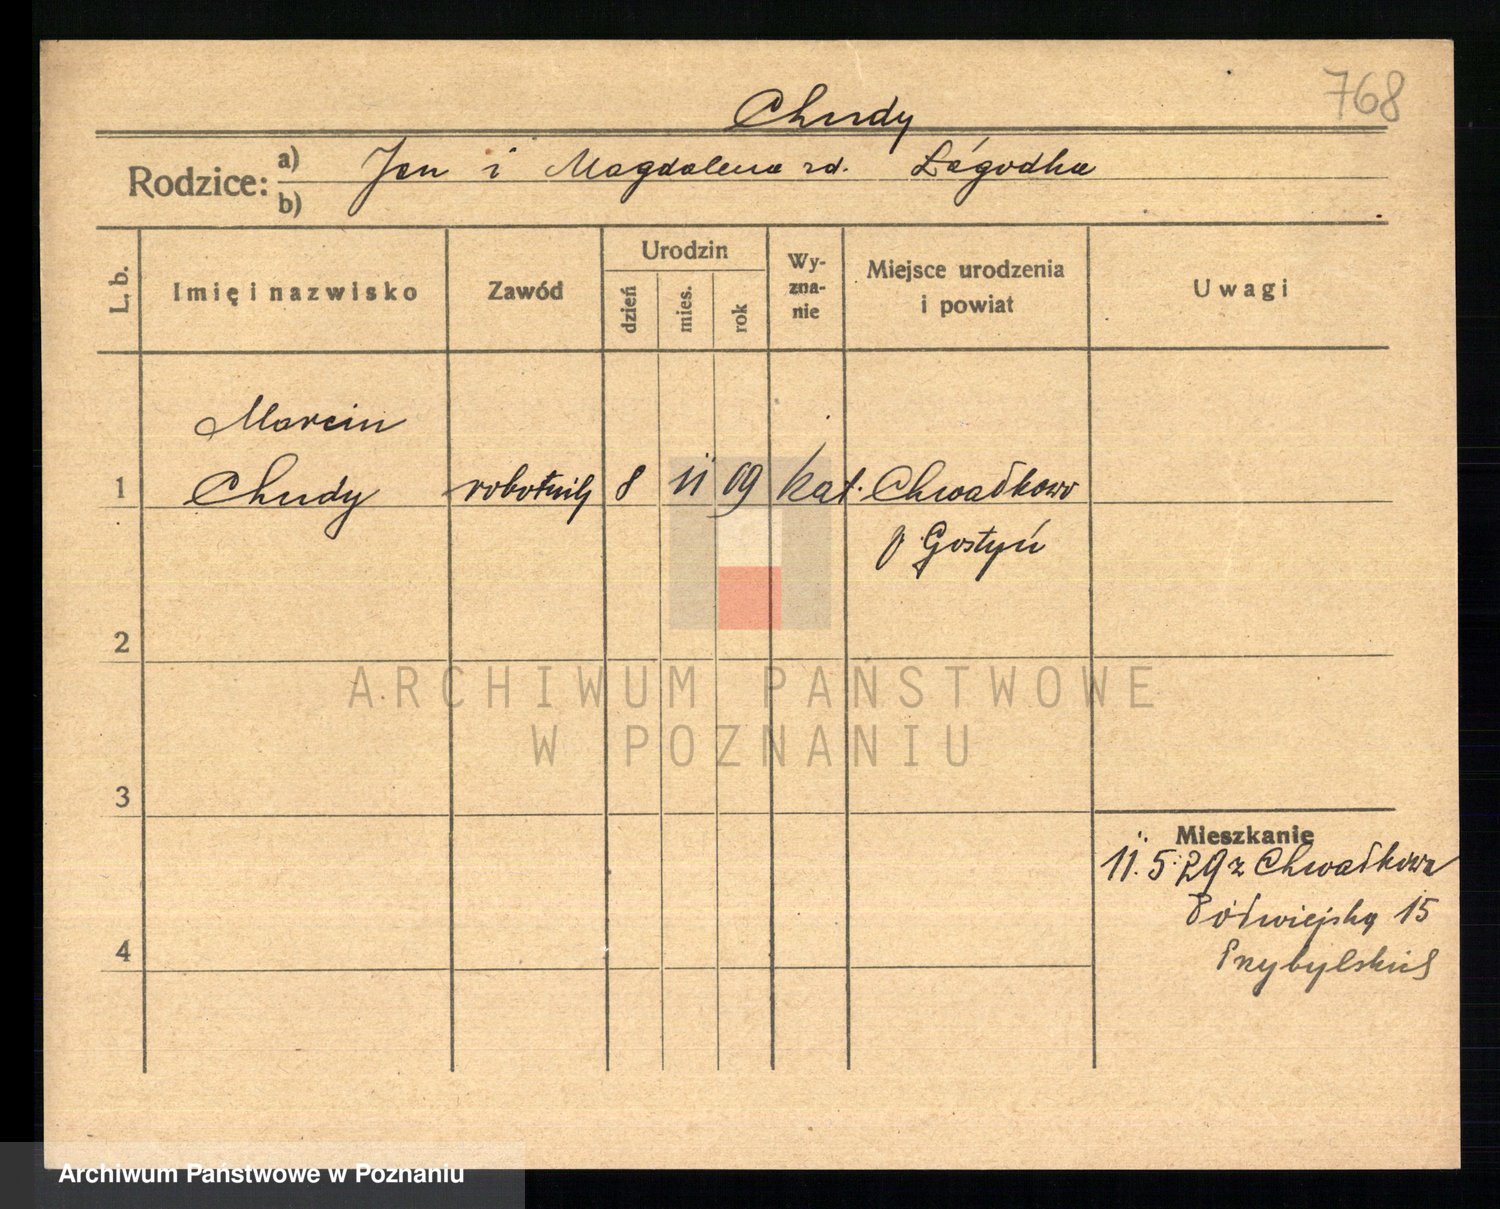 768
Chudy
Rodzice: a) Jan i Magdalena rd. Łagodka
b)
L. b. Imię i nazwisko Zawód Urodzin dzień mies. rok Wyznanie Miejsce urodzenia i powiat Uwagi
Marcin
1 Chudy robotnik 8 11 09 kat. Chwałkowo
p Gostyń
2
ARCHIWUM PAŃSTWOWE
W POZNANIU
3
Mieszkanie
11.5.29 z Chwałkowa
Półwiejska 15
4
Archiwum Państwowe w Poznaniu